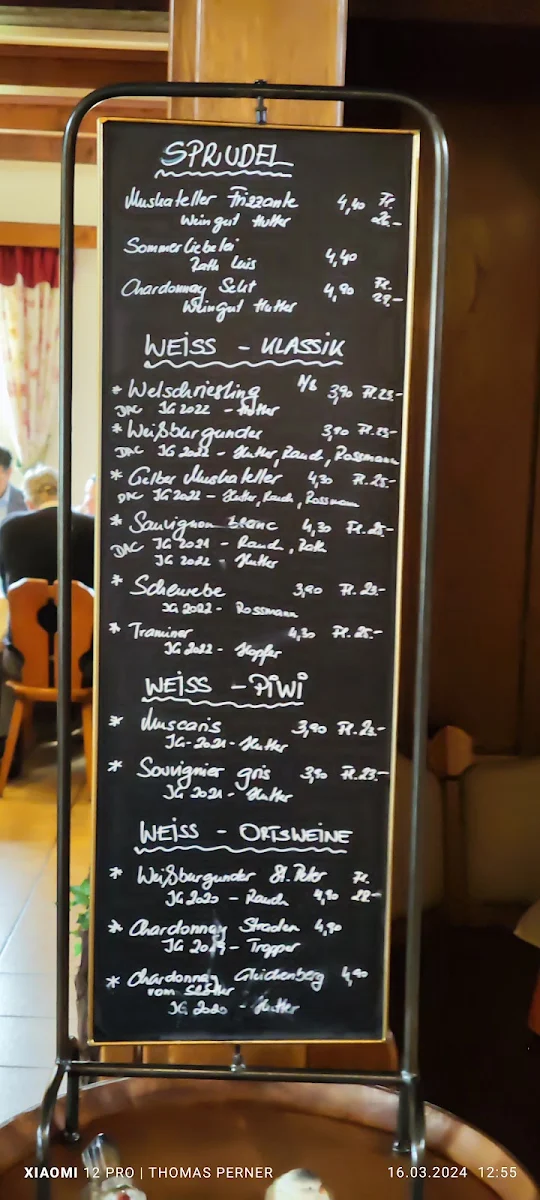 SPRUDEL
Muskateller Frizzante 4,40 Fr.
Weingut Hutter 26.-
Sommerliebelei
Rath Luis 4,40
Chardonnay Sekt 4,90 Fr.
Weingut Hutter 29.-
WEISS - KLASSIK
* Welschriesling 1/8 3,90 Fl. 23.-
DAC JG 2022 - Hutter
* Weißburgunder 3,90 Fl. 23.-
DAC JG 2022 - Hutter, Rauch, Rossmann
* Gelber Muskateller 4,30 Fl. 25.-
DAC JG 2022 - Hutter, Rauch, Rossmann
* Sauvignon blanc 4,30 Fl. 25.-
DAC JG 2021 - Rauch, Rath
JG 2022 - Hutter
* Scheurebe 3,90 Fl. 23.-
JG 2022 - Rossmann
* Traminer 4,30 Fl. 25.-
JG 2022 - Hopfer
WEISS - PIWI
* Muscaris 3,90 Fl. 23.-
JG - 2021 - Hutter
* Souvignier gris 3,90 Fl. 23.-
JG 2021 - Hutter
WEISS - ORTSWEINE
* Weißburgunder St. Peter Fl.
JG 2020 - Rauch 4,90 28.-
* Chardonnay Straden 4,90
JG - Tropper
* Chardonnay Gleichenberg 4,90
vom
JG 2020 - Hutter
XIAOMI 12 PRO | THOMAS PERNER 16.03.2024 12:55